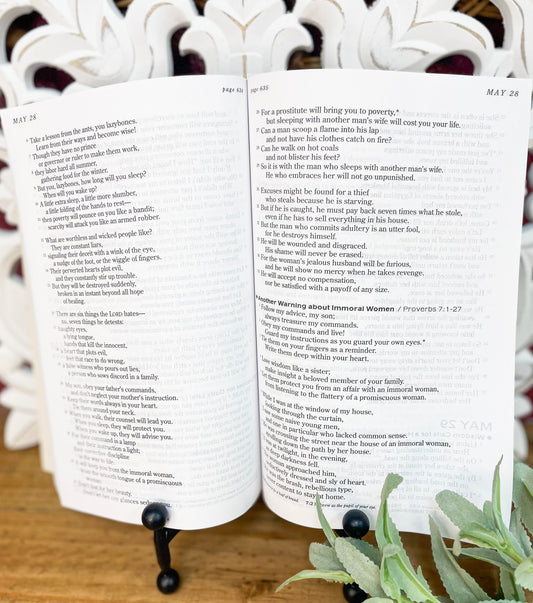 page 634
MAY 28
6 Take a lesson from the ants, you lazybones.
Learn from their ways and become wise!
7 Though they have no prince
or governor or ruler to make them work,
8 they labor hard all summer,
gathering food for the winter.
9 But you, lazybones, how long will you sleep?
When will you wake up?
10 A little extra sleep, a little more slumber,
a little folding of the hands to rest—
11 then poverty will pounce on you like a bandit;
scarcity will attack you like an armed robber.
12 What are worthless and wicked people like?
They are constant liars,
13 signaling their deceit with a wink of the eye,
a nudge of the foot, or the wiggle of fingers.
14 Their perverted hearts plot evil,
and they constantly stir up trouble.
15 But they will be destroyed suddenly,
broken in an instant beyond all hope
of healing.
16 There are six things the LORD hates—
no, seven things he detests:
haughty eyes,
a lying tongue,
hands that kill the innocent,
a heart that plots evil,
feet that race to do wrong,
a false witness who pours out lies,
a person who sows discord in a family.
My son, obey your father's commands,
and don't neglect your mother's instruction.
Keep their words always in your heart.
Tie them around your neck.
When you walk, their counsel will lead you.
When you sleep, they will protect you.
When you wake up, they will advise you.
their command is a lamp
and their instruction a light;
their corrective discipline
is the way to life.
It will keep you from the immoral woman,
from the smooth tongue of a promiscuous
woman.
Don't lust for her beauty.
Don't let her coy glances seduce you.
page 635
MAY 28
26 For a prostitute will bring you to poverty,*
but sleeping with another man's wife will cost you your life.
27 Can a man scoop a flame into his lap
and not have his clothes catch on fire?
28 Can he walk on hot coals
and not blister his feet?
29 So it is with the man who sleeps with another man's wife.
He who embraces her will not go unpunished.
30 Excuses might be found for a thief
who steals because he is starving.
31 But if he is caught, he must pay back seven times what he stole,
even if he has to sell everything in his house.
32 But the man who commits adultery is an utter fool,
for he destroys himself.
33 He will be wounded and disgraced.
His shame will never be erased.
34 For the woman's jealous husband will be furious,
and he will show no mercy when he takes revenge.
35 He will accept no compensation,
nor be satisfied with a payoff of any size.
Another Warning about Immoral Women / Proverbs 7:1-27
Follow my advice, my son;
always treasure my commands.
2 Obey my commands and live!
Guard my instructions as you guard your own eyes.*
3 Tie them on your fingers as a reminder.
Write them deep within your heart.
Love wisdom like a sister;
make insight a beloved member of your family.
Let them protect you from an affair with an immoral woman,
from listening to the flattery of a promiscuous woman.
While I was at the window of my house,
looking through the curtain,
saw some naive young men,
and one in particular who lacked common sense.
He was crossing the street near the house of an immoral woman,
strolling down the path by her house.
was at twilight, in the evening,
deep darkness fell.
woman approached him,
seductively dressed and sly of heart.
was the brash, rebellious type,
never content to stay at home.
7:2
as the pupil of your eye.